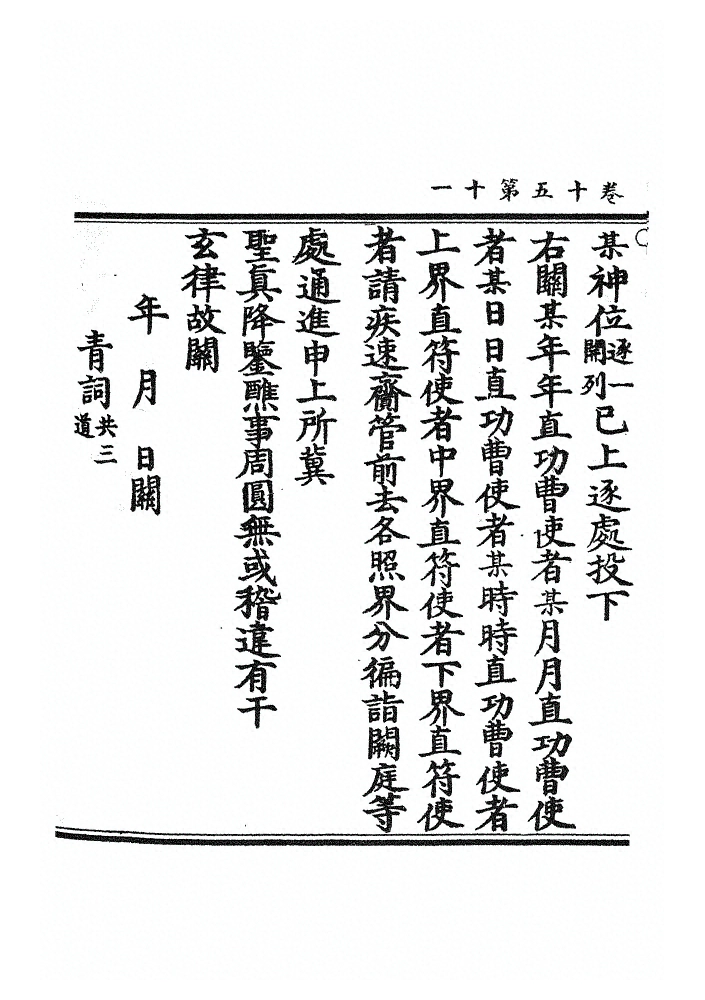 卷十五第十一
某神位逐一開列已上逐處投下
右關某年年直功曹使者某月月直功曹使
者某日日直功曹使者某時時直功曹使者
上界直符使者中界直符使者下界直符使
者請疾速齎管前去各照界分徧詣闕庭等
處通進申上所冀
聖眞降鑒醮事周圓無或稽違有干
玄律故關
年 月 日關
青詞共三道